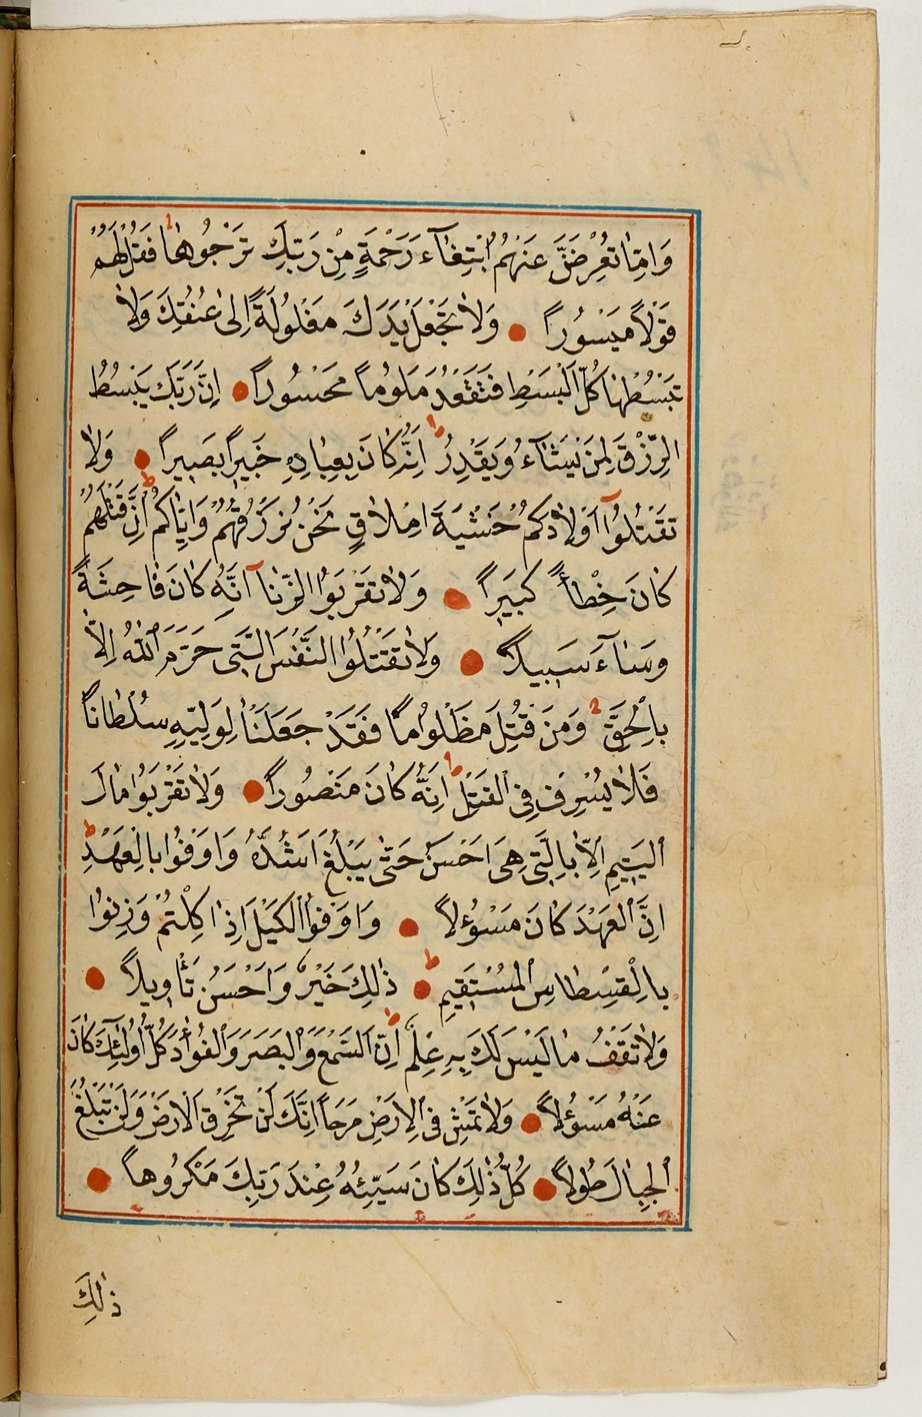 وَاِمَّا تُعْرِضَنَّ عَنْهُمُ ابْتِغَآءَ رَحْمَةٍ مِنْ رَبِّكَ تَرْجُوهَا فَقُلْ لَهُمْ
قَوْلاً مَيْسُوراً وَلاَ تَجْعَلْ يَدَكَ مَغْلُولَةً اِلىٰ عُنُقِكَ وَلاَ
تَبْسُطْهَا كُلَّ الْبَسْطِ فَتَقْعُدَ مَلُوماً مَحْسُوراً اِنَّ رَبَّكَ يَبْسُطُ
الرِّزْقَ لِمَنْ يَشَآءُ وَيَقْدِرُ اِنَّهُ كَانَ بِعِبَادِهِ خَبِيراً بَصِيراً وَلاَ
تَقْتُلُوٓا اَوْلاَدَكُمْ خَشْيَةَ اِمْلاَقٍ نَحْنُ نَرْزُقُهُمْ وَاِيَّاكُمْ اِنَّ قَتْلَهُمْ
كَانَ خِطْأً كَبِيراً وَلاَ تَقْرَبُوا الزِّنَآ اِنَّهُ كَانَ فَاحِشَةً
وَسَآءَ سَبِيلاً وَلاَ تَقْتُلُوا النَّفْسَ الَّتِى حَرَّمَ اللّٰهُ اِلاَّ
بِالْحَقِّ وَمَنْ قُتِلَ مَظْلُوماً فَقَدْ جَعَلْنَا لِوَلِيِّهِ سُلْطَاناً
فَلاَ يُسْرِفْ فِى الْقَتْلِ اِنَّهُ كَانَ مَنْصُوراً وَلاَ تَقْرَبُوا مَالَ
الْيَتِيمِ اِلاَّ بِالَّتِى هِىَ اَحْسَنُ حَتّٰى يَبْلُغَ اَشُدَّهُ وَاَوْفُوا بِالْعَهْدِ
اِنَّ الْعَهْدَ كَانَ مَسْؤُلاً وَاَوْفُوا الْكَيْلَ اِذَا كِلْتُمْ وَزِنُوا
بِالْقِسْطَاسِ الْمُسْتَقِيمِ ذٰلِكَ خَيْرٌ وَاَحْسَنُ تَأْوِيلاً
وَلاَ تَقْفُ مَا لَيْسَ لَكَ بِهِ عِلْمٌ اِنَّ السَّمْعَ وَالْبَصَرَ وَالْفُؤٰدَ كُلُّ اُولٰٓئِكَ كَانَ
عَنْهُ مَسْؤُلاً وَلاَ تَمْشِ فِى الْاَرْضِ مَرَحاً اِنَّكَ لَنْ تَخْرِقَ الْاَرْضَ وَلَنْ تَبْلُغَ
الْجِبَالَ طُولاً كُلُّ ذٰلِكَ كَانَ سَيِّئُهُ عِنْدَ رَبِّكَ مَكْرُوهاً
ذٰلِكَ